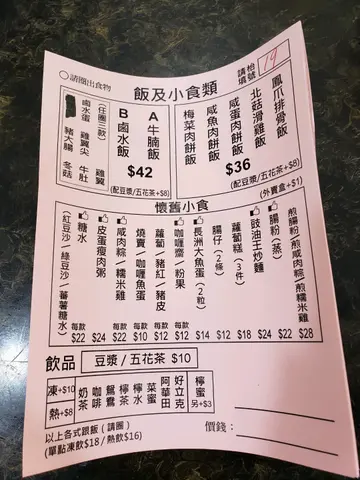 ○請圈出食物
飯及小食類
請枱填號
19
鳳爪排骨飯
北菇滑雞飯
咸蛋肉餅飯
咸魚肉餅飯
梅菜肉餅飯
$36
(配豆漿/五花茶+$8)
A 牛腩飯
B 鹵水飯
$42
(配豆漿/五花茶+$8)
(任圈三款)
雞翼尖 雞翼
鹵水蛋 牛肚
豬大腸 冬菇
(外賣盒+$1)
懷舊小食
煎腸粉/煎咸肉粽/煎糯米雞 $28
腸粉(蒸) $22
豉油王炒麵 $24
蘿蔔糕(3件) $18
腸仔(2條) $12
長洲大魚蛋(2粒) $14
咖喱齋/粉果 每款 $12
蘿蔔/豬紅/豬皮 每款 $12
燒賣/咖喱魚蛋 每款 $10
咸肉粽/糯米雞 每款 $22
皮蛋瘦肉粥 $24
糖水 每款 $22
(紅豆沙/綠豆沙/蕃薯糖水)
飲品 豆漿/五花茶 $10
凍+$10
熱+$8
奶茶
咖啡
鴛鴦
檸茶
檸水
菜蜜
阿華田
好立克
檸蜜 另+$3
以上各式跟飯(請圈)
(單點凍飲$18/熱飲$16)
價錢: